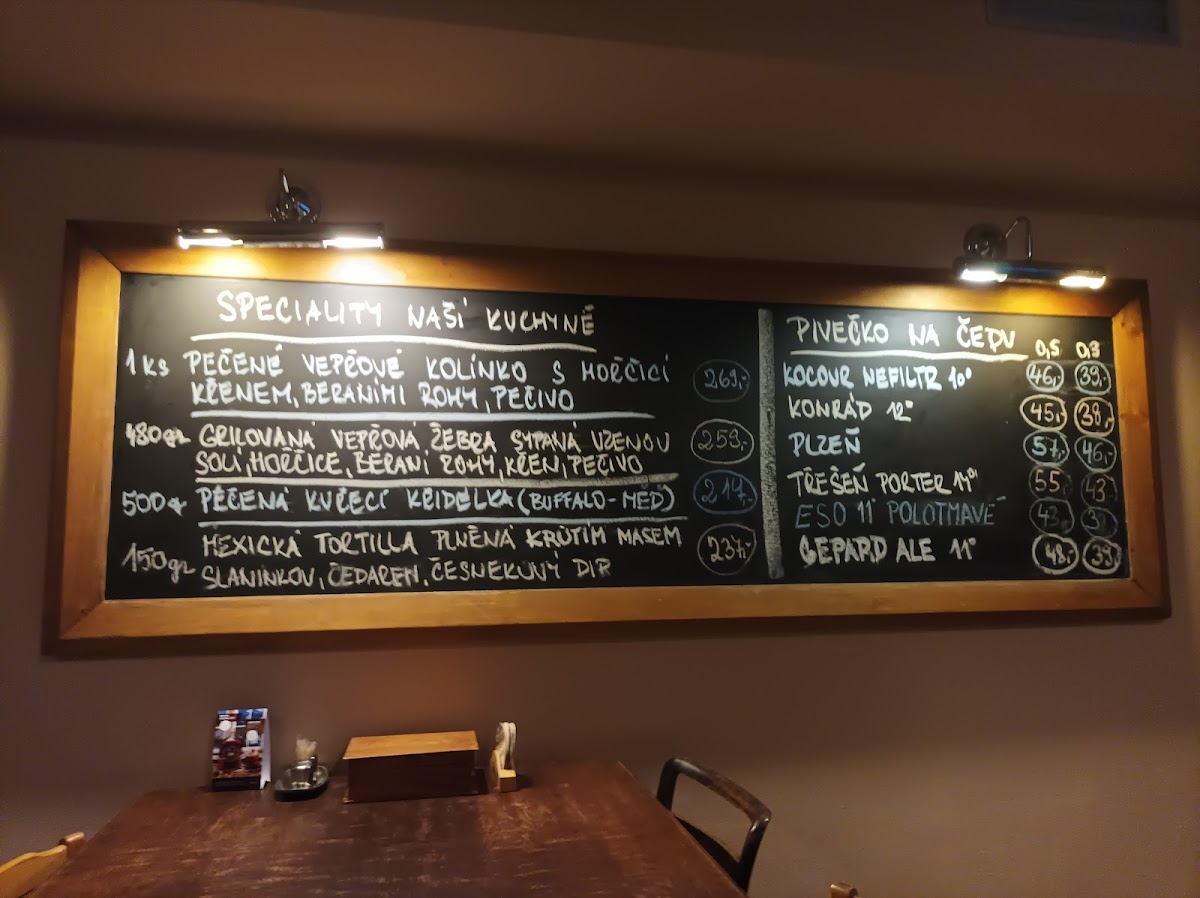 SPECIALITY NAŠÍ KUCHYNĚ
1 ks PEČENÉ VEPŘOVÉ KOLÍNKO S HOŘČICÍ 269,-
KŘENEM, BERANÍMI ROHY, PEČIVO
480gr GRILOVANÁ VEPŘOVÁ ŽEBRA SYPANÁ UZENOU 259,-
SOLÍ, HOŘČICE, BERANÍ ROHY, KŘEN, PEČIVO
500g PEČENÁ KUŘECÍ KŘIDELKA (BUFFALO-MED) 217,-
150gr MEXICKÁ TORTILLA PLNĚNÁ KRŮTÍM MASEM 237,-
SLANINKOU, ČEDAREM, ČESNEKOVÝ DIP
PIVEČKO NA ČEPU 0,5 0,3
KOCOUR NEFILTR 10° 46,- 39,-
KONRÁD 12° 45,- 38,-
PLZEŇ 57,- 46,-
TŘEŠEŇ PORTER 55,- 43,-
ESO 11 POLOTMAVÉ 43,-
GEPARD ALE 11° 48,- 39,-